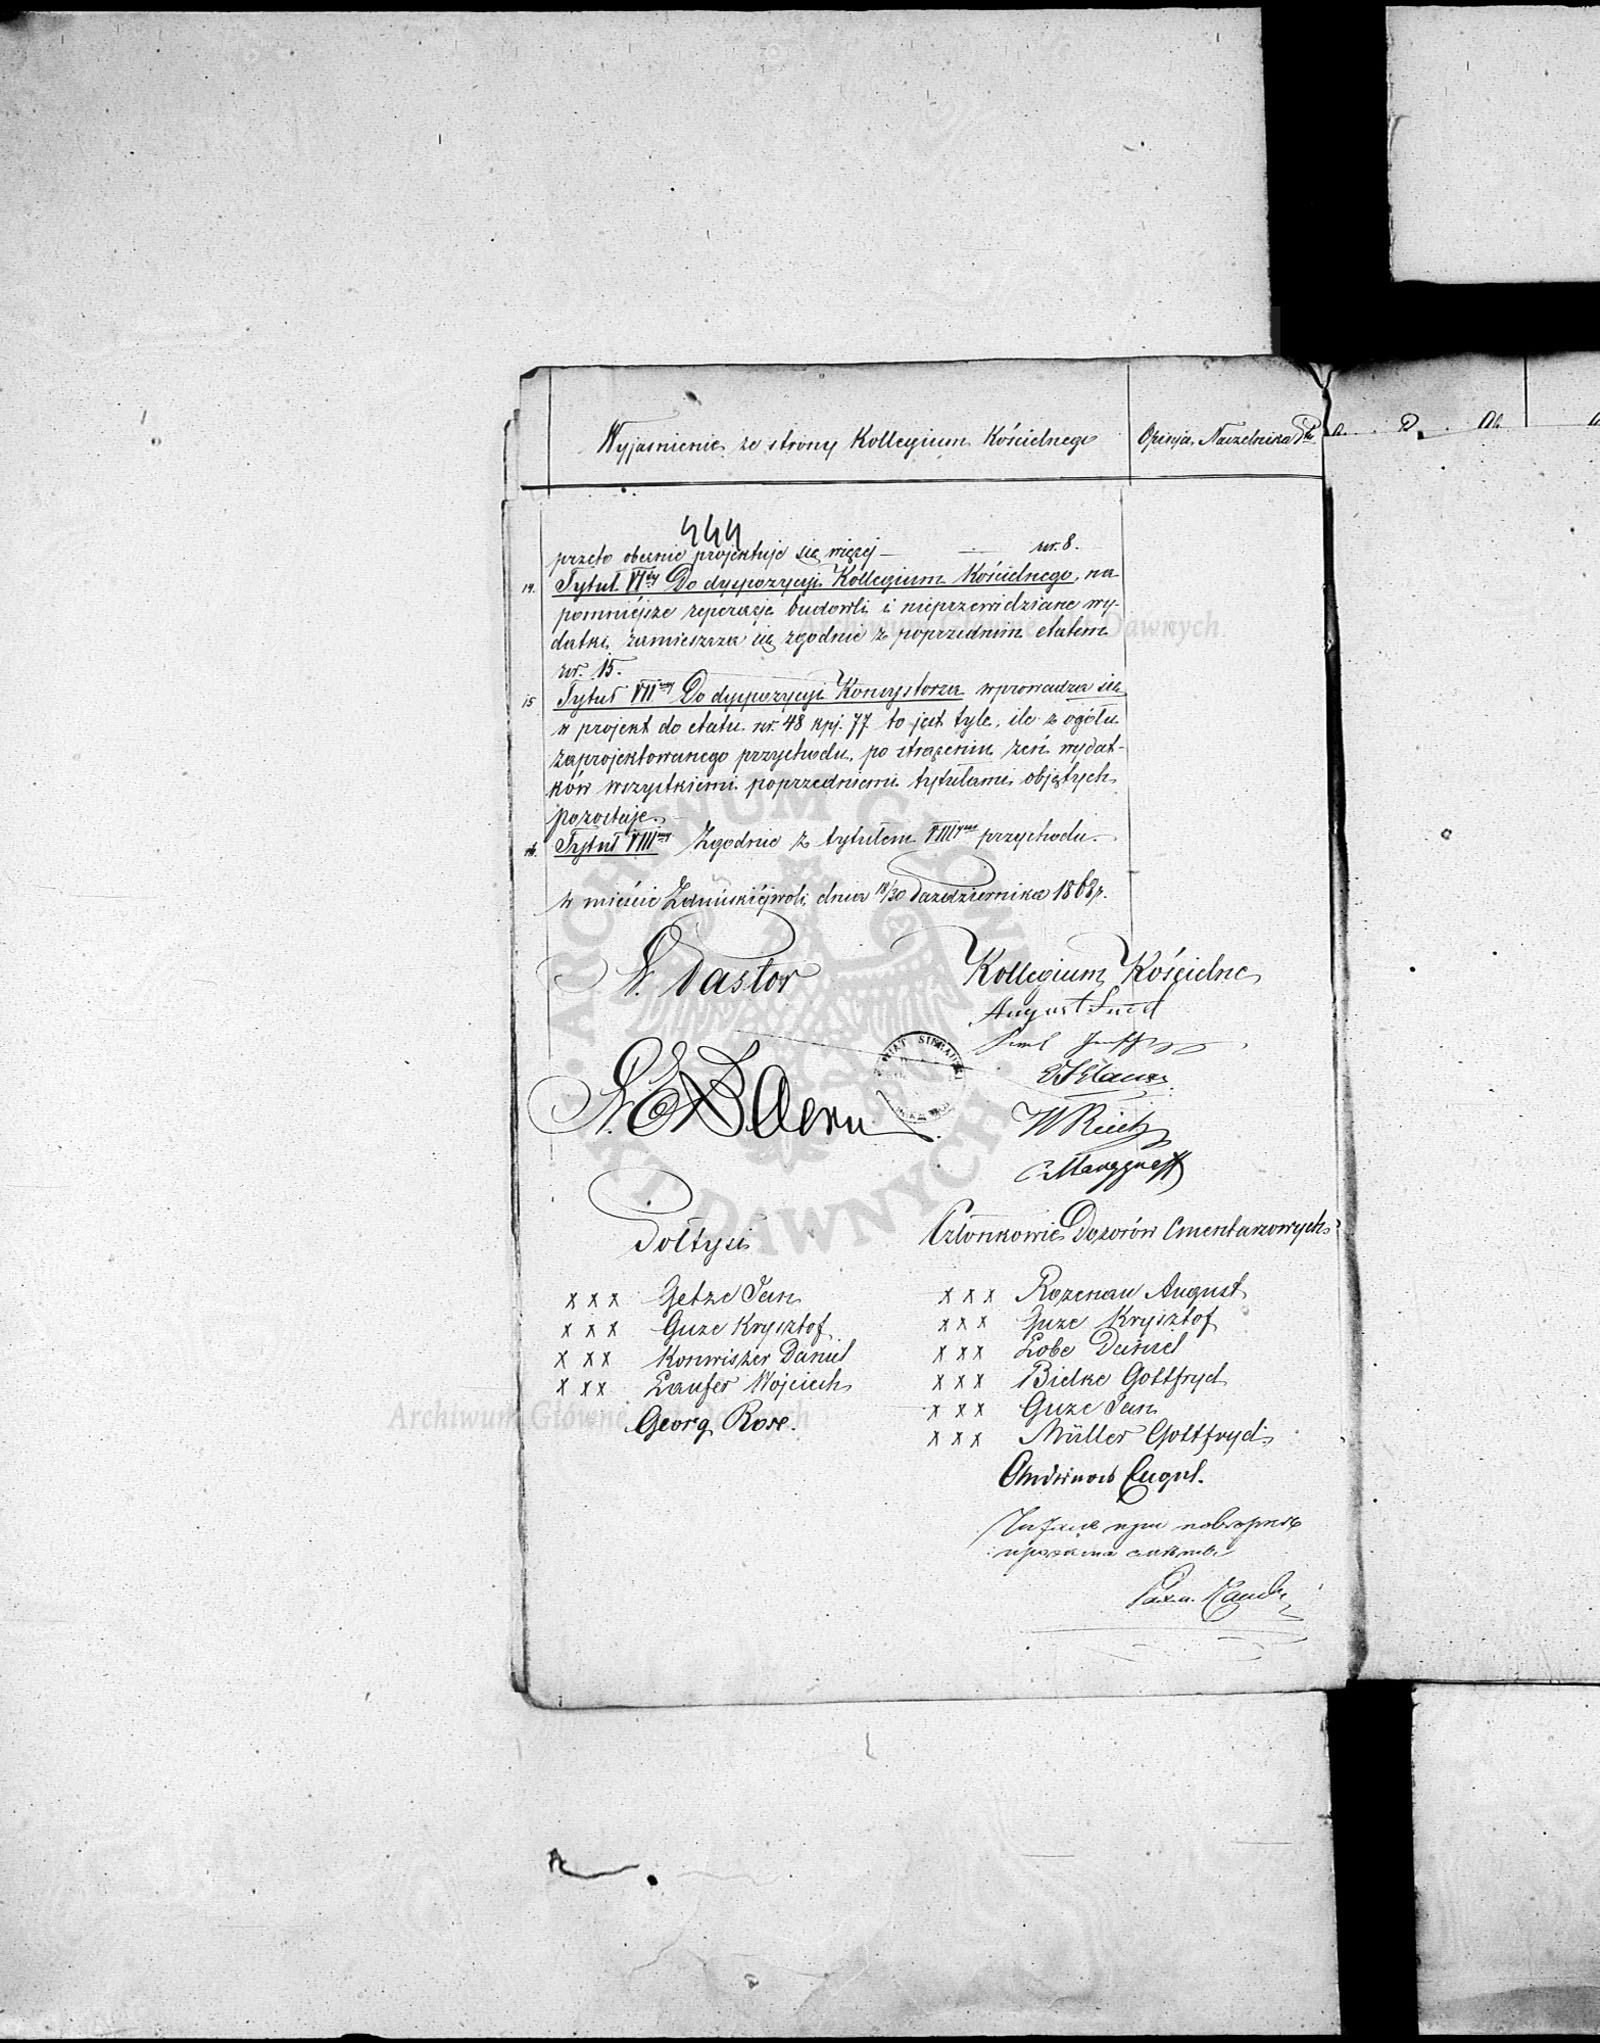 Wyjasnienie ze strony Kollegium Kościelnego
Opinja Naczelnika Ptu
444
przeto obecnie projektuje się więcej — — nr. 8.
14. Tytuł VIty Do dyspozycyi Kollegium Kościelnego, na
pomniejsze reperacje budowli i nieprzewidziane wy-
datki, zamieszcza się zgodnie z poprzednim etatem
nr. 15.
15 Tytuł VIImy Do dyspozycyi Konsystorza wprowadza się
w projekt do etatu nr. 48 kpj. 77 to jest tyle, ile z ogółu
zaprojektowanego przychodu, po strąceniu zeń wydat-
ków wszystkiemi poprzedniemi tytułami objętych
pozostaje.
16. Tytuł VIIImy Zgodnie z tytułem VIIIym przychodu.
w mieście Zduńskiéjwoli dnia 18/30 Października 1868 r.
Pastor
Kollegium Kościelne
August
W Reich
Sołtysi
Członkowie Dozorów Cmentarzowych
x x x Getze Jan
x x x Guze Krysztof
x x x Konwiszer Daniel
x x x Laufer Wojciech
Georg Rose.
x x x Rozenau August
x x x Guze Krysztof
x x x Lobe Daniel
x x x Bielke Gottfryd
x x x Guze Jan
x x x Müller Gottfryd
Archiwum Główne Akt Dawnych